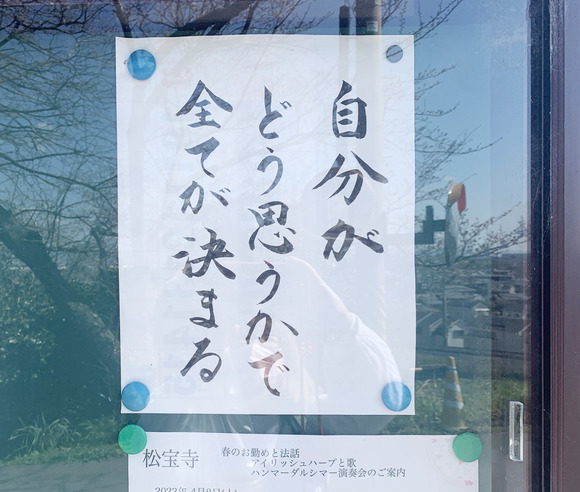 自分が
どう思うかで
全てが決まる
松宝寺
春のお勤めと法話
アイリッシュハープと歌
ハンマーダルシマー演奏会のご案内